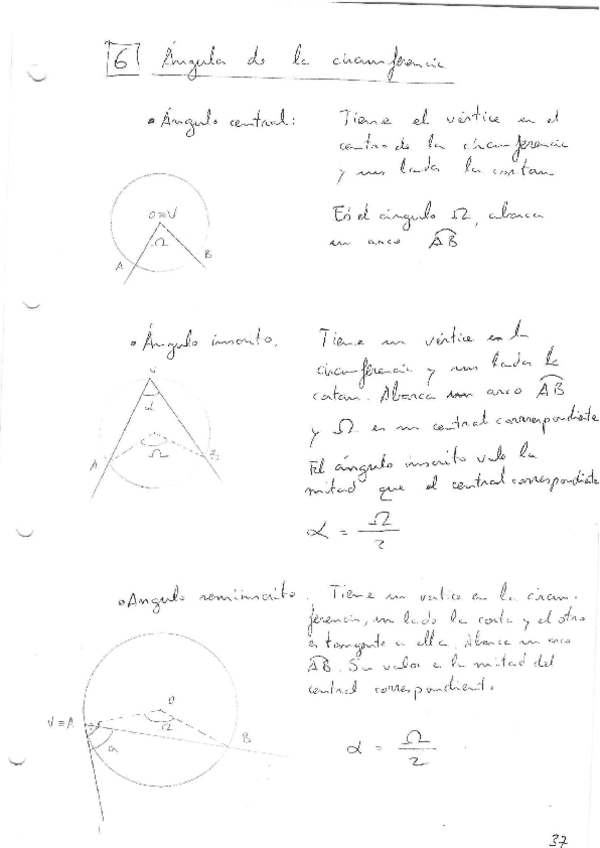 6 Ángulos de la circunferencia
• Ángulo central:
Tiene el vértice en el
centro de la circunferencia
y sus lados la cortan
O≡V
Ω
A
B
Es el ángulo Ω, abarca
un arco AB
• Ángulo inscrito.
Tiene un vértice en la
circunferencia y sus lados la
cortan. Abarca un arco AB
y Ω es su central correspondiente
El ángulo inscrito vale la
mitad que el central correspondiente
α = Ω/2
V
α
Ω
A
B
• Angulo semiinscrito.
Tiene un vertice en la circun-
ferencia, un lado la corta y el otro
es tangente a ella. Abarca un arco
AB. Su valor es la mitad del
central correspondient.
O
Ω
V≡A
B
α
α = Ω/2
37